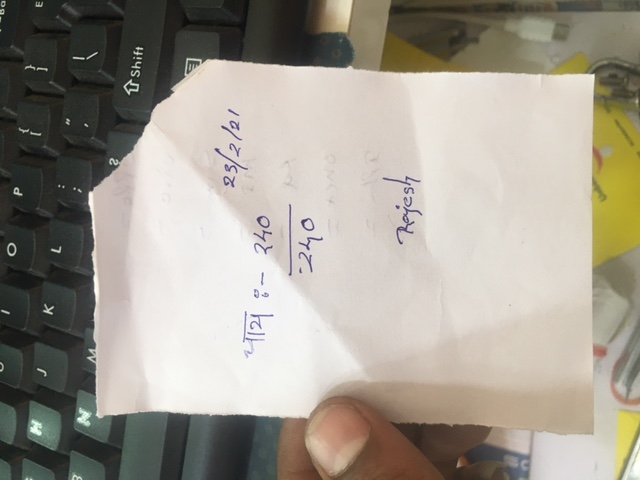 U I O P { [ } ]
H J K L : ; " ' | \
N M ? Shift
23/2/21
चाय :- 240
240
Rajesh